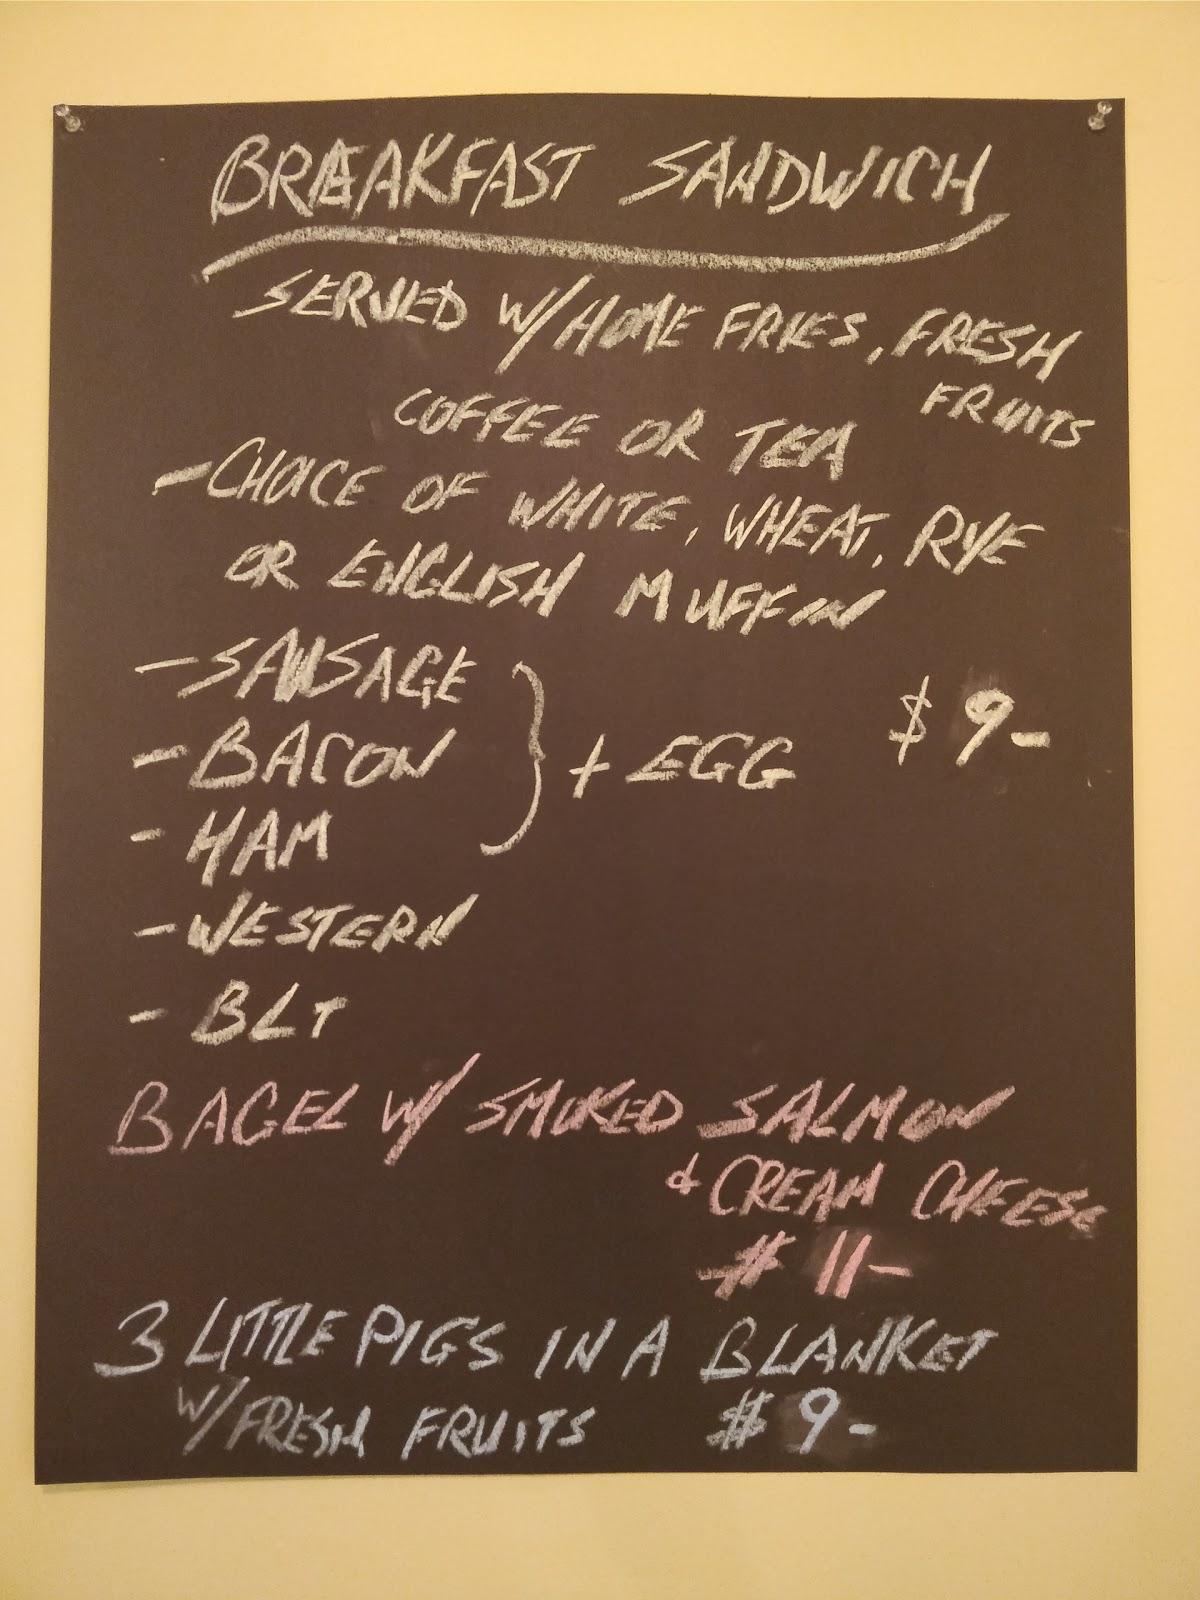 BREAKFAST SANDWICH
SERVED W/HOME FRIES, FRESH
FRUITS
COFFEE OR TEA
- CHOICE OF WHITE, WHEAT, RYE
OR ENGLISH MUFFIN
- SAUSAGE
- BACON
- HAM
} + EGG $9-
- WESTERN
- BLT
BAGEL W/ SMOKED SALMON
& CREAM CHEESE
$ 11-
3 LITTLE PIGS IN A BLANKET
W/FRESH FRUITS $ 9-